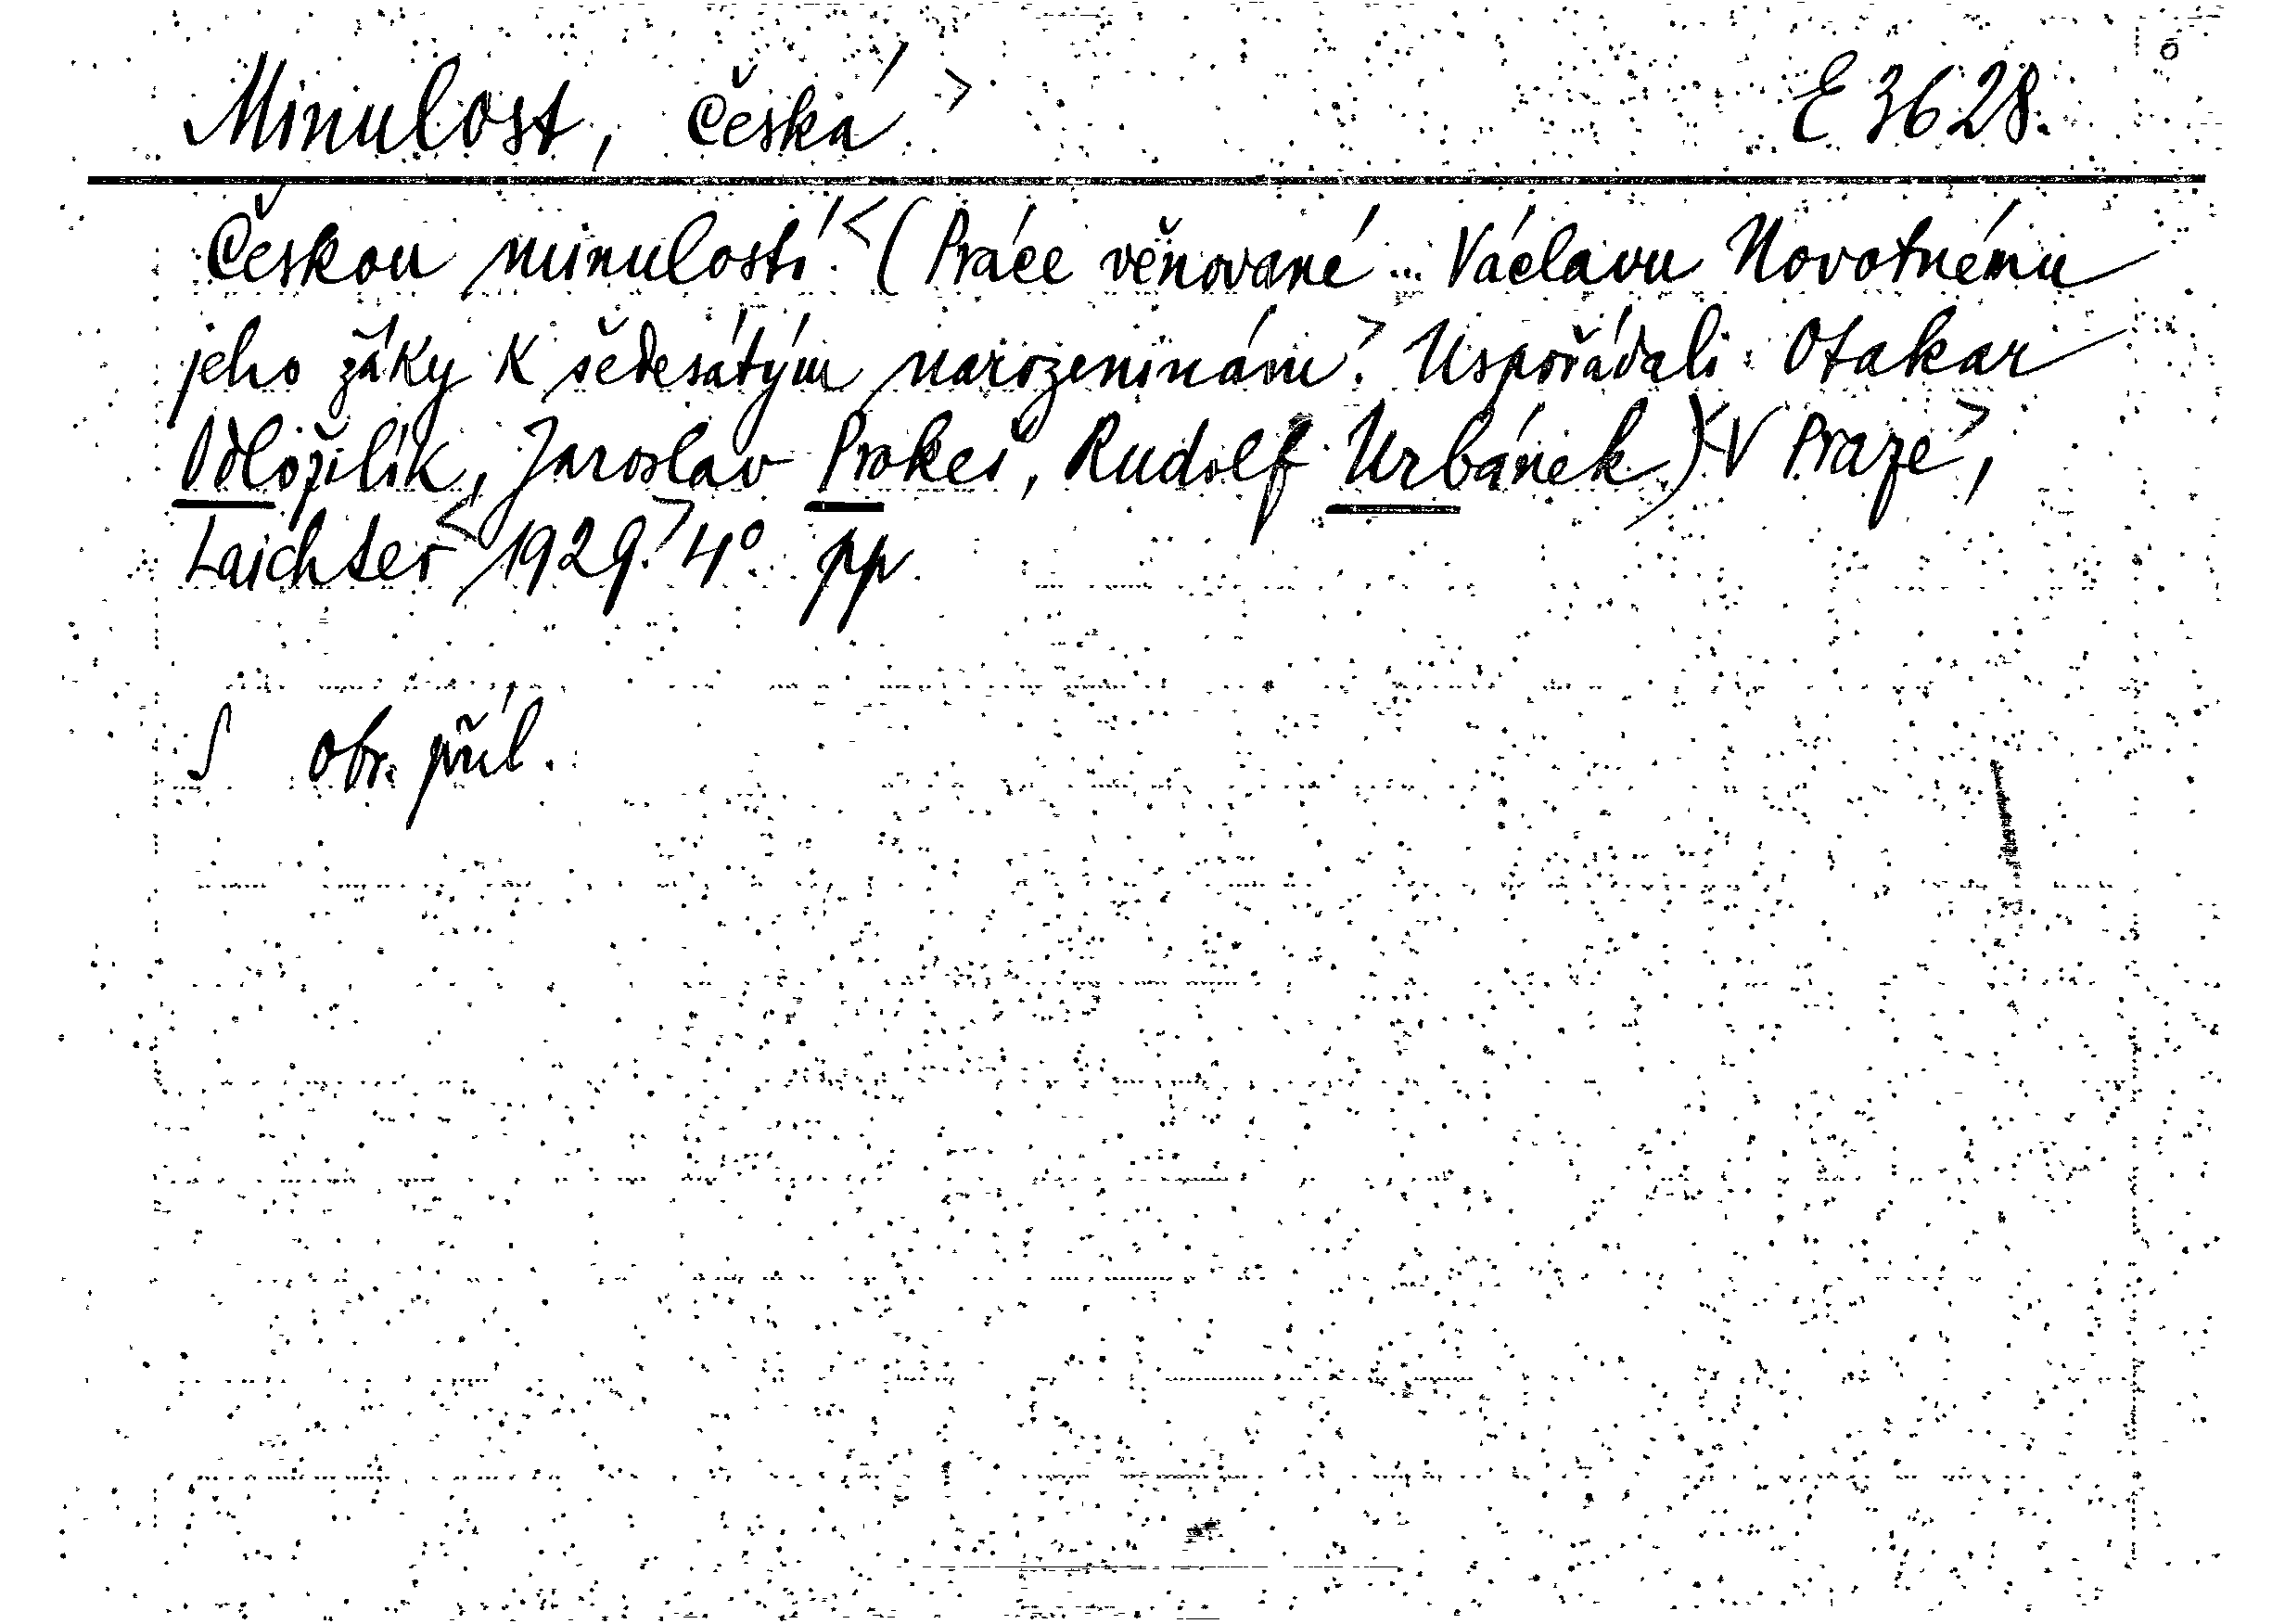 Minulost, Česká > E 3628.
Českou minulostí. < (Práce věnované ... Václavu Novotnému
jeho žáky k šedesátým narozeninám. > Uspořádali: Otakar
Odložilík, Jaroslav Prokeš, Rudolf Urbánek.) < V Praze >,
Laichter < 1929. > 4° pp.
S obr. příl.